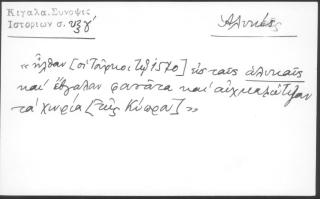 Κιγαλα. Συνοψις
Ιστοριων σ. υξγ΄
Ἁλυκές
«ἦλθαν [οἱ Τοῦρκοι τῷ 1570] εἰς ταῖς ἁλυκαῖς
καὶ ἔβγαλαν φανάτα καὶ αἰχμαλώτιζαν
τὰ χωρία [τῆς Κύπρου]»